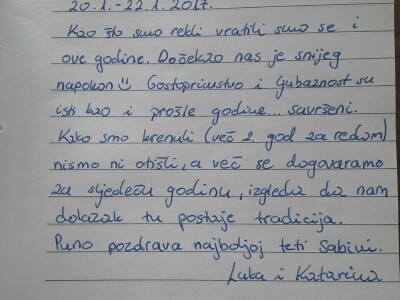 20.1.-22.1.2017.
Kao što smo rekli vratili smo se i
ove godine. Dočekao nas je snijeg
napokon☺ Gostoprimstvo i ljubaznost su
isti kao i prošle godine... savršeni.
Kako smo krenuli (već 2. god za redom)
nismo ni otišli, a već se dogovaramo
za sljedeću godinu, izgleda da nam
dolazak tu postaje tradicija.
Puno pozdrava najboljoj teti Sabini.
Luka i Katarina